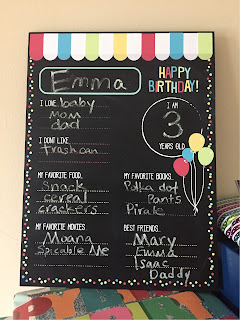 Emma
HAPPY
BIRTHDAY!
I LOVE baby
Mom
dad
I AM
3
YEARS OLD
I DONT LIKE
Trashcan
MY FAVORITE FOOD,
Snack
cereal
crackers
MY FAVORITE BOOKS,
Polka dot
Pants
Pirate
MY FAVORITE MOVIES
Moana
Spicable Me
BEST FRIENDS,
Mary
Emma
Isaac
Daddy